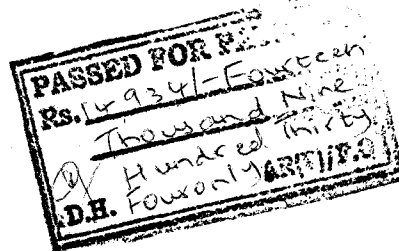 PASSED FOR
Rs. 14934/- Fourteen
Thousand Nine
Hundred Thirty
D.H. Four only AR(T)/P.O